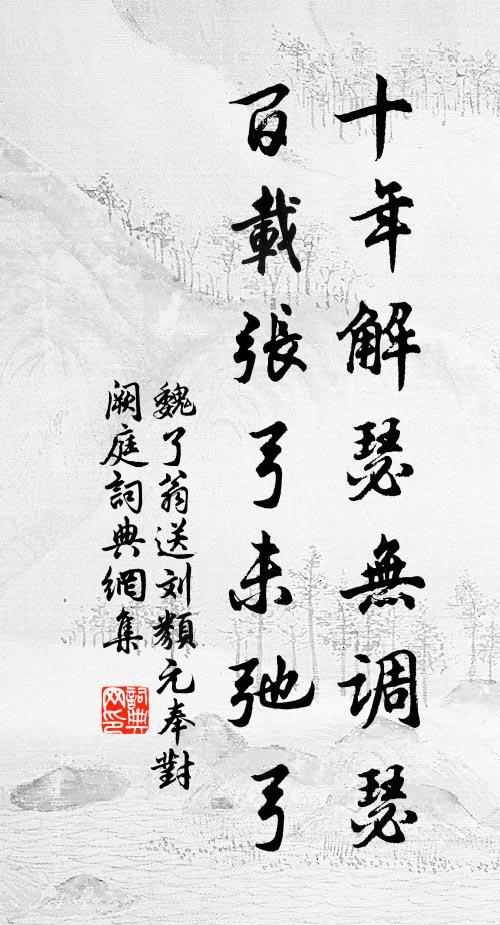 十年解瑟無调瑟
百載張弓未弛弓
魏了翁送刘類元奉對
阙庭詞典網集
詞典网印